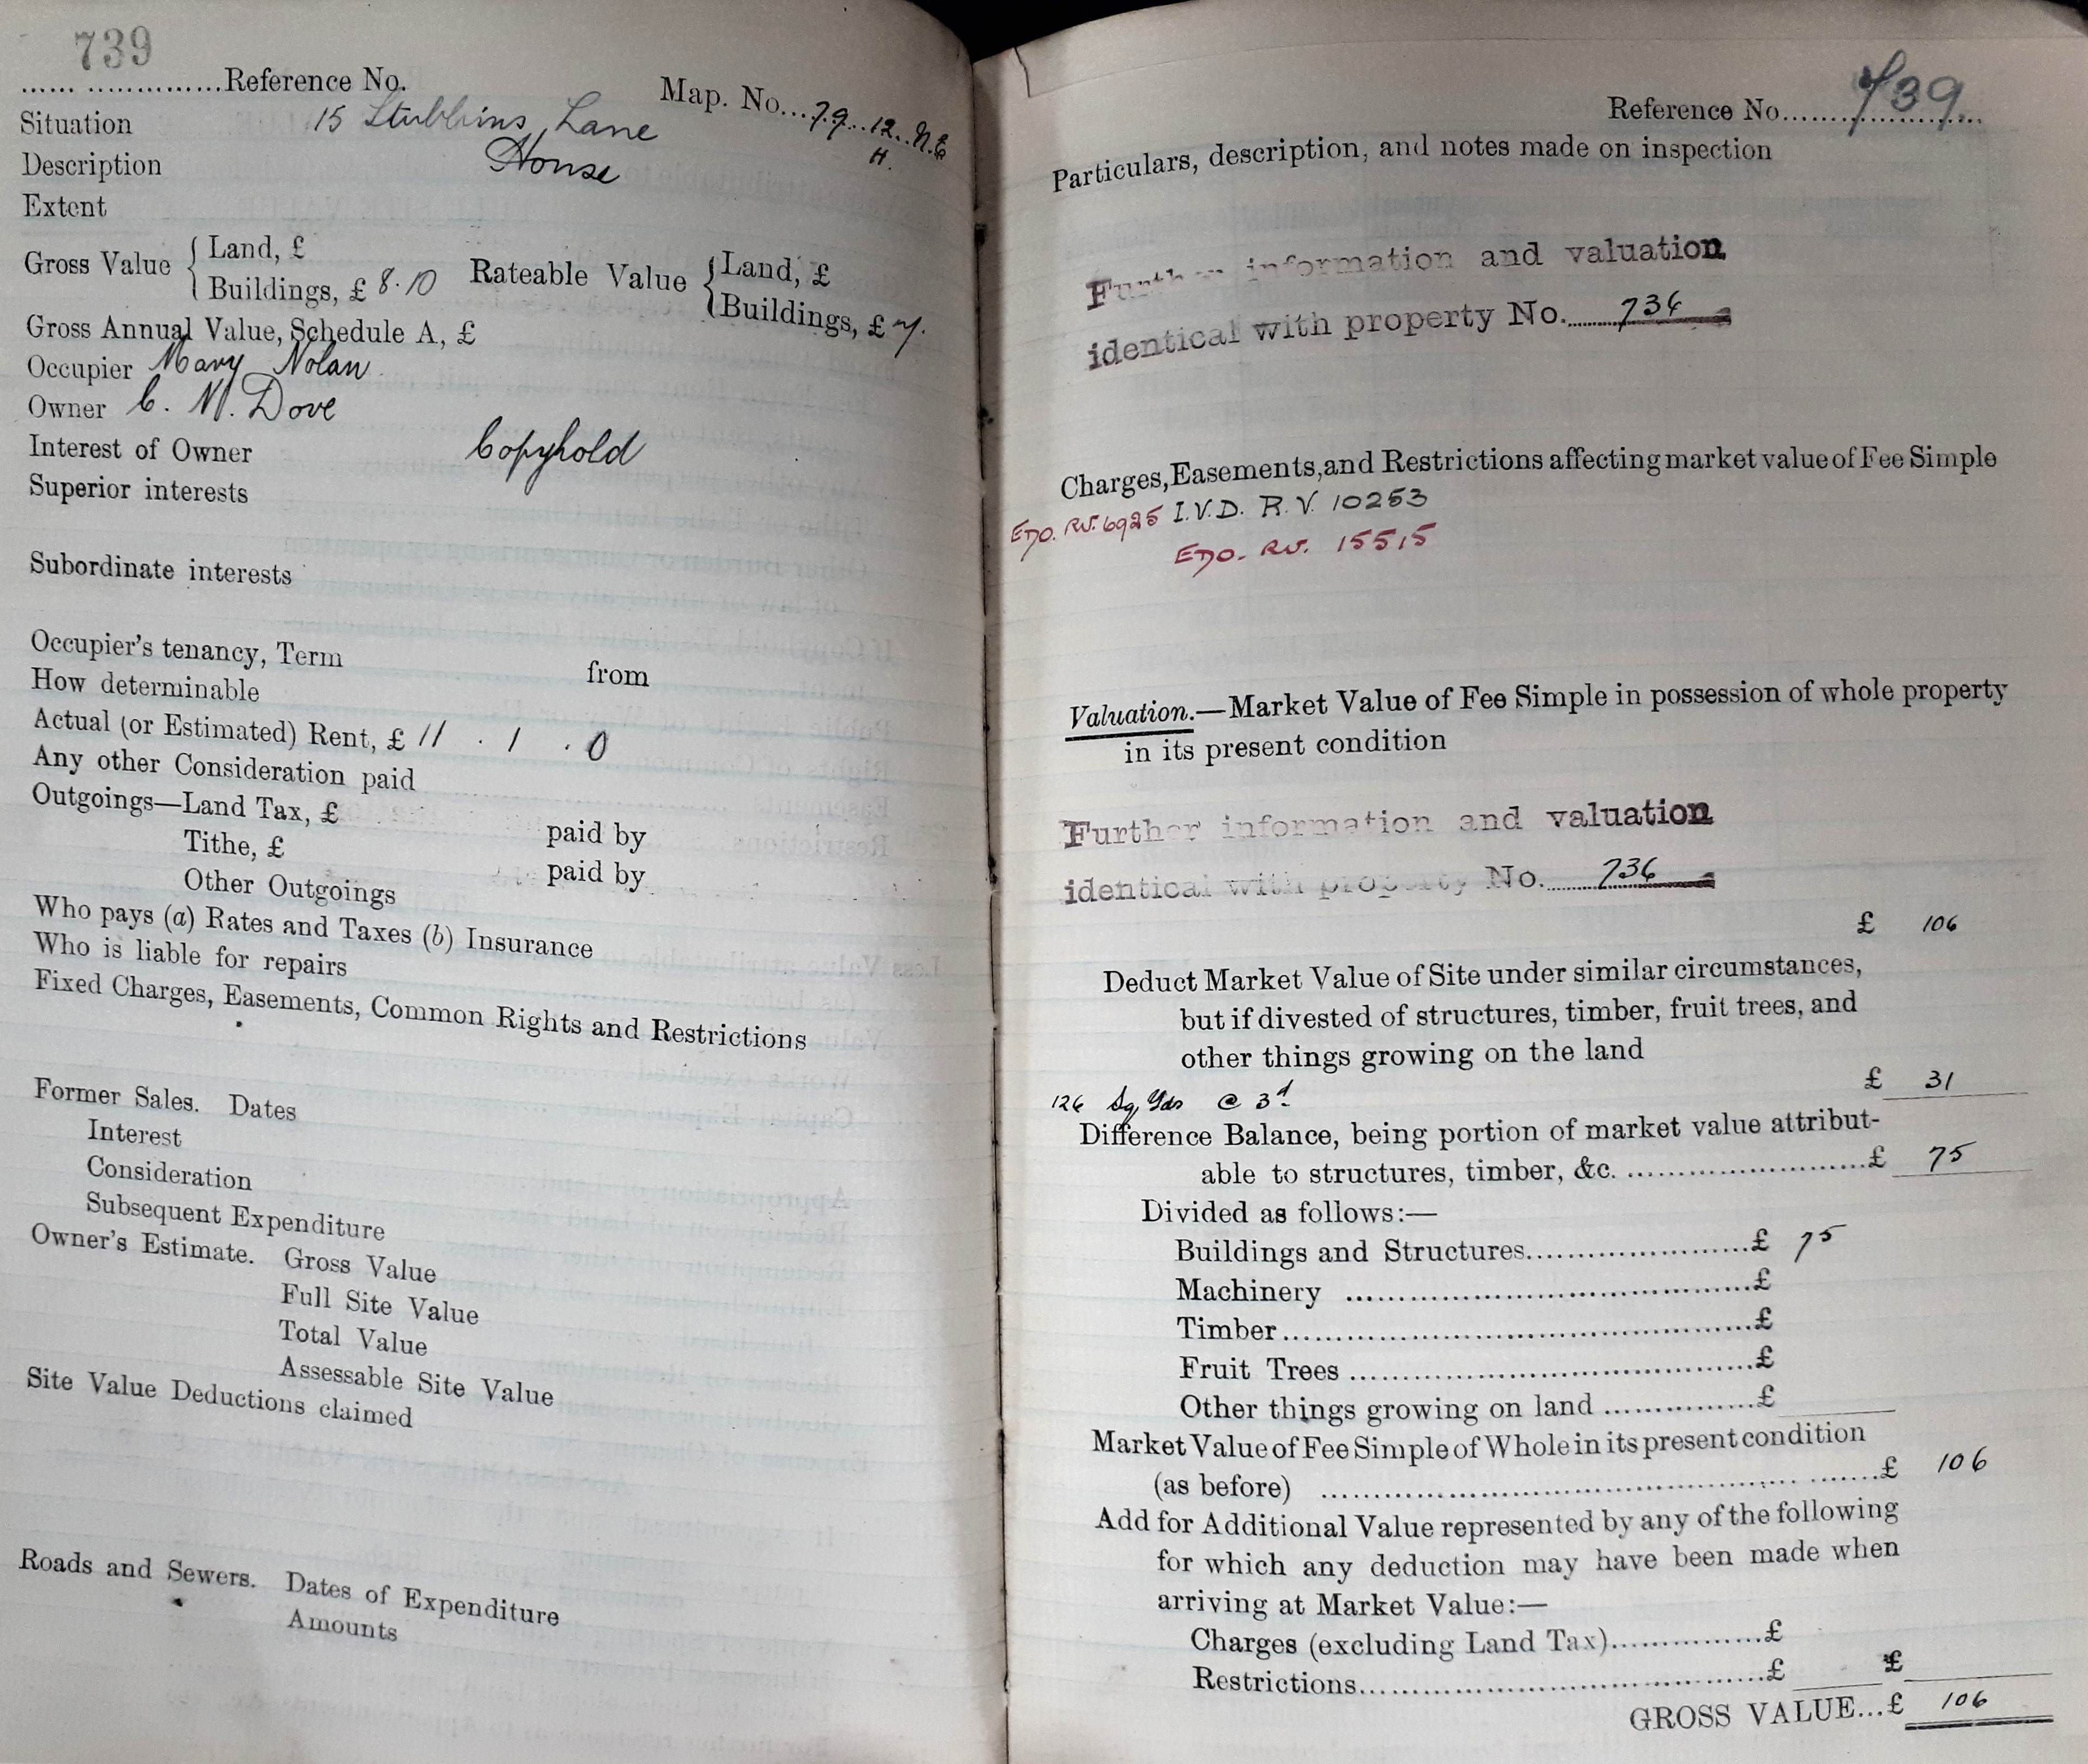 739
...... ..............Reference No.
Map. No...79..12.N.E
H.
Situation 15 Stubbins Lane
Description House
Extent
Gross Value { Land, £
Buildings, £ 8.10
Rateable Value { Land, £
Buildings, £ 7.
Gross Annual Value, Schedule A, £
Occupier Mary Nolan
Owner C. N. Dove
Interest of Owner Copyhold
Superior interests
Subordinate interests
Occupier's tenancy, Term from
How determinable
Actual (or Estimated) Rent, £ 11 . 1 . 0
Any other Consideration paid
Outgoings—Land Tax, £ paid by
Tithe, £ paid by
Other Outgoings
Who pays (a) Rates and Taxes (b) Insurance
Who is liable for repairs
Fixed Charges, Easements, Common Rights and Restrictions
Former Sales. Dates
Interest
Consideration
Subsequent Expenditure
Owner's Estimate. Gross Value
Full Site Value
Total Value
Assessable Site Value
Site Value Deductions claimed
Roads and Sewers. Dates of Expenditure
Amounts
Reference No. 739
Particulars, description, and notes made on inspection
Further information and valuation
identical with property No. 736
Charges, Easements, and Restrictions affecting market value of Fee Simple
EDO. RV. 6925 I.V.D. R.V. 10253
EDO. RV. 15515
Valuation.—Market Value of Fee Simple in possession of whole property
in its present condition
Further information and valuation
identical with property No. 736
£ 106
Deduct Market Value of Site under similar circumstances,
but if divested of structures, timber, fruit trees, and
other things growing on the land
£ 31
126 Sq Yds @ 3d
Difference Balance, being portion of market value attribut-
able to structures, timber, &c. ........................£ 75
Divided as follows:—
Buildings and Structures......................£ 75
Machinery ........................................£
Timber..............................................£
Fruit Trees .......................................£
Other things growing on land ...............£
Market Value of Fee Simple of Whole in its present condition
(as before) .....................................................£ 106
Add for Additional Value represented by any of the following
for which any deduction may have been made when
arriving at Market Value:—
Charges (excluding Land Tax)...............£
Restrictions.......................................£ £
GROSS VALUE...£ 106